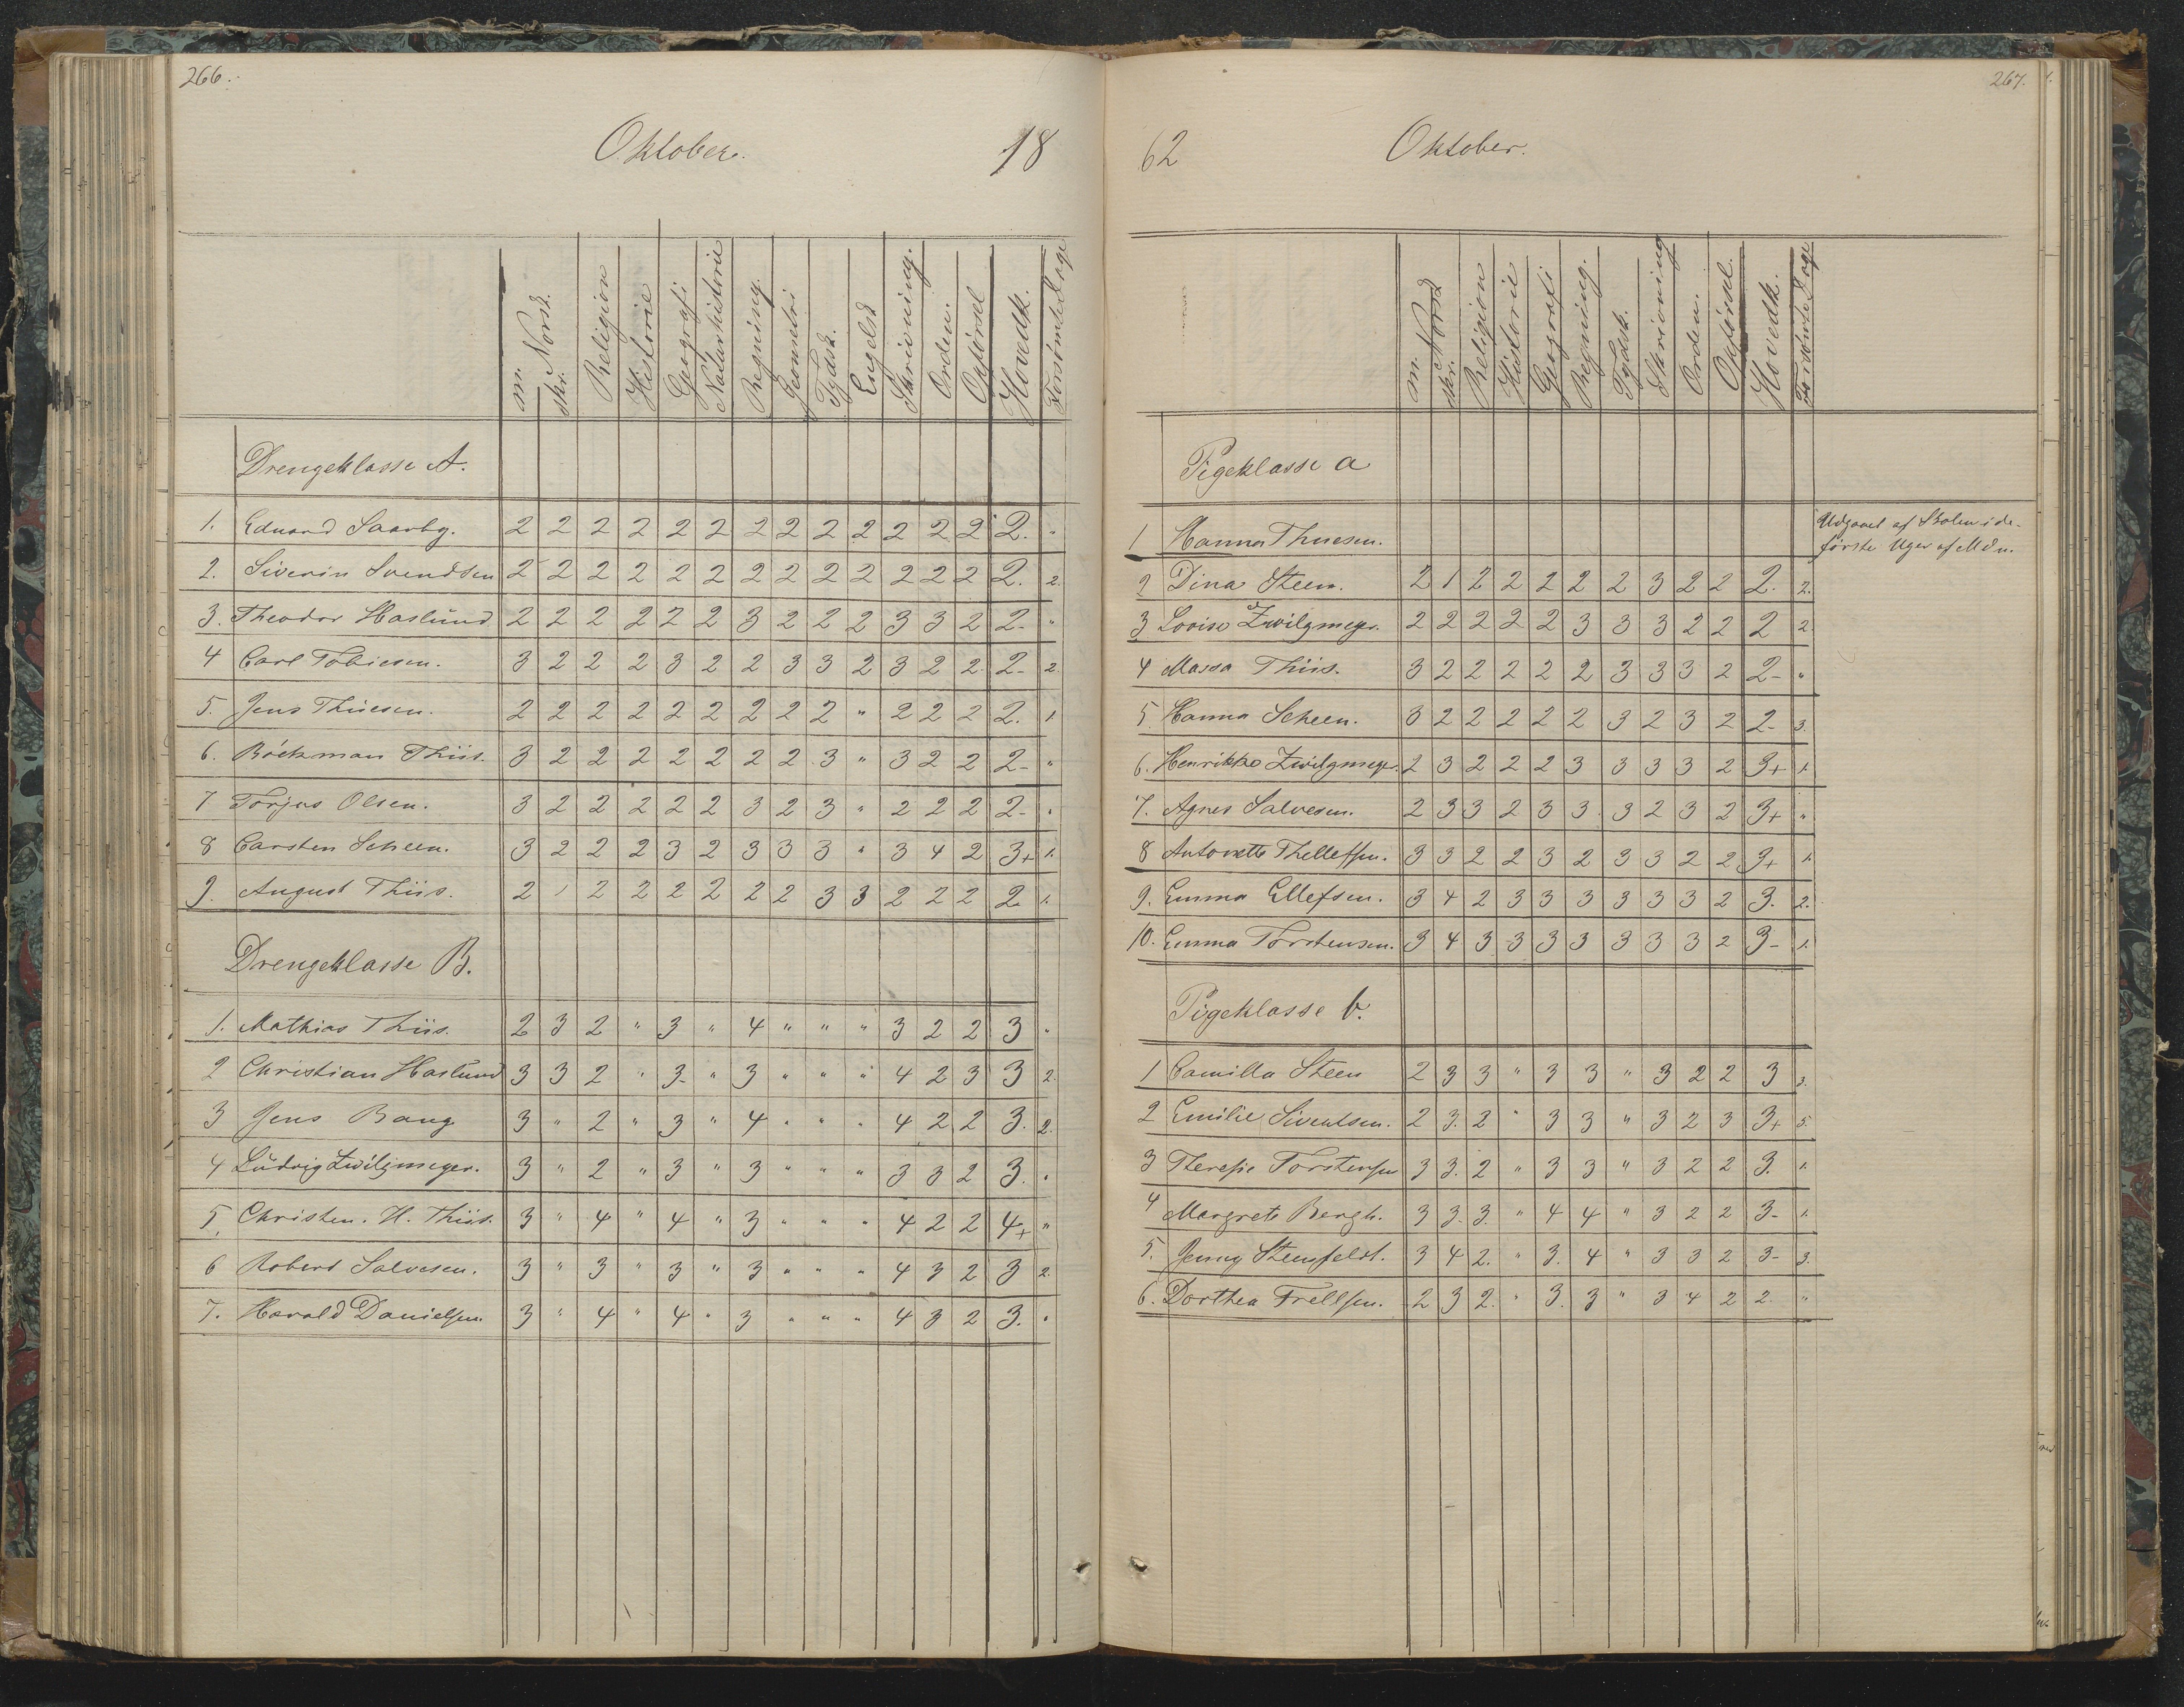 266.
Oktober. 18
m. Norsk. skr. Religion Historie Geografi Naturhistorie Regning. Geometri Tydsk. Engelsk Skrivning. Orden. Opførsel Hovedk. Forsømte Dage
Drengeklasse A.
1. Eduard Saarby. 2 2 2 2 2 2 2 2 2 2 2 2 2 2. "
2. Siverin Svendsen 2 2 2 2 2 2 2 2 2 2 2 2 2 2. 2.
3. Theodor Haslund 2 2 2 2 2 2 3 2 2 2 3 3 2 2- "
4 Carl Tobiesen. 3 2 2 2 3 2 2 3 3 2 3 2 2. 2- 2.
5. Jens Thuesen. 2 2 2 2 2 2 2 2 2 " 2 2 2 2. 1.
6. Böckman Thiis. 3 2 2 2 2 2 2 2 3 " 3 2 2 2- "
7 Torjus Olsen. 3 2 2 2 2 2 3 2 3 " 2 2 2 2- "
8 Carsten Scheen. 3 2 2 2 3 2 3 3 3 " 3 4 2 3+ 1.
9. August Thiis. 2 1 2 2 2 2 2 2 3 3 2 2 2 2. 1.
Drengeklasse B.
1. Mathias Thiis. 2 3 2 " 3 " 4 " " " 3 2 2 3 "
2 Christian Haslund 3 3 2 " 3- " 3 " " " 4 2 3 3 2.
3 Jens Bang 3 " 2 " 3 " 4 " " " 4 2 2 3. 2.
4 Ludvig Zwilgmeyer. 3 " 2 " 3 " 3 " " " 3 3 2 3. "
5. Christen. H. Thiis. 3 " 4 " 4 " 3 " " " 4 2 2 4+ "
6 Robert Salvesen. 3 " 3 " 3 " 3 " " " 4 3 2 3 2.
7. Harald Danielsen. 3 " 4 " 4 " 3 " " " 4 3 2 3. "
267.
62 Oktober.
m. Norsk skr. Religion Historie Geografi Regning. Tydsk. Skrivning Orden. Opførsel. Hovedk. Forsømte Dage
Pigeklasse a
1 Hanna Thuesen. Udgaaet af Skolen i de
første Uger af Mdn.
2 Dina Steen. 2 1 2 2 2 2 2 3 2 2 2. 2.
3 Lovise Zwilgmeyer. 2 2 2 2 2 3 3 3 2 2 2 2.
4 Massa Thiis. 3 2 2 2 2 2 3 3 3 2 2- "
5. Hanna Scheen. 3 2 2 2 2 2 3 2 3 2 2- 3.
6. Henrikke Zwilgmeyer. 2 3 2 2 2 3 3 3 3 2 3+ 1.
7. Agnes Salvesen. 2 3 3 2 3 3 3 2 3 2 3+ "
8 Antonette Thellefsen. 3 3 2 2 3 2 3 3 2 2 3+ 1.
9. Emma Ellefsen. 3 4 2 3 3 3 3 3 3 2 3. 2.
10. Emma Torstensen. 3 4 3 3 3 3 3 3 3 2 3- 1.
Pigeklasse b.
1 Camilla Steen 2 3 3 " 3 3 " 3 2 2 3 3.
2 Emilie Siventsen. 2 3. 2 " 3 3 " 3 2 3 3+ 5.
3 Theresie Torstensen 3 3. 2 " 3 3 " 3 2 2 3. 1.
4 Margrete Bergh. 3 3- 3. " 4 4 " 3 2 2 3- 1.
5. Jenny Stensfeldt. 3 4 2. " 3. 4 " 3 3 2 3- 3.
6. Dorthea Trellsen. 2 3 2. " 3. 3 " 3 4 2 2. "